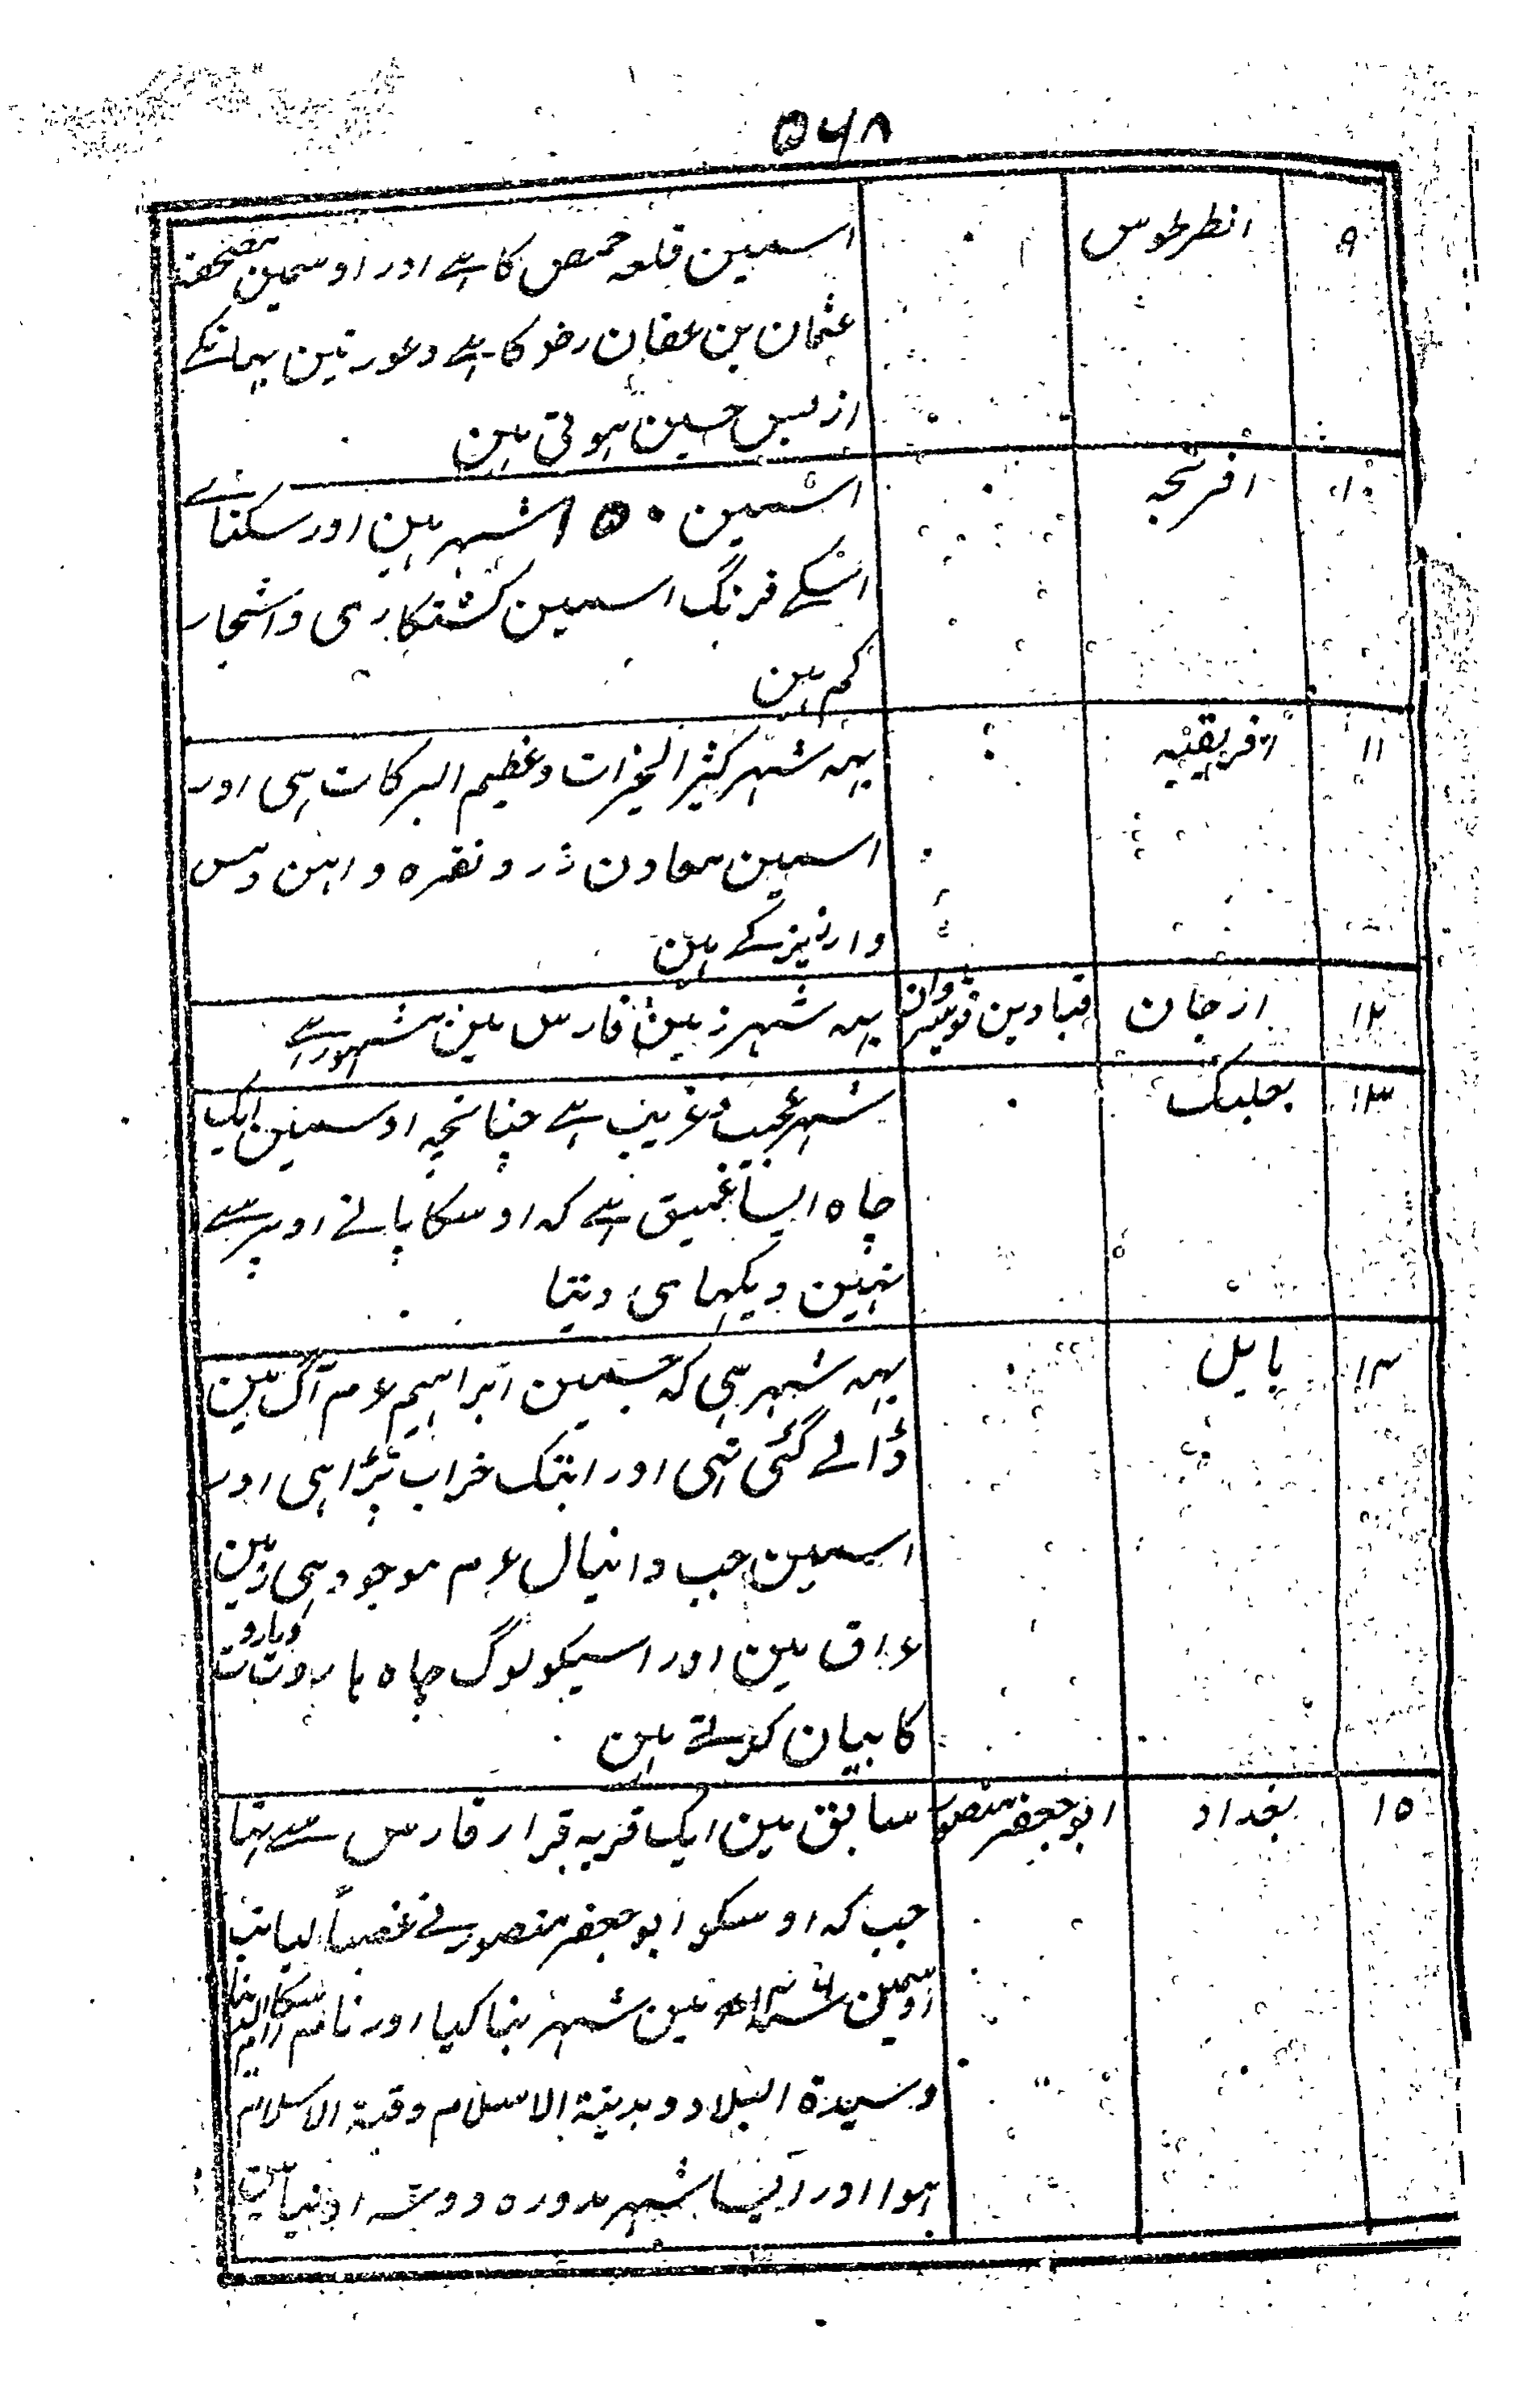 ۵۶۸
۹ انطرطوس اسمین قلعہ حمص کا ہے اور اوسمین مصحف
عثمان بن عفان رضہ کا ہے وعورتین یہانکے
ازبس حسین ہوتی ہین
۱۰ افرنجہ اسمین ۱۵۰ شہر ہین اور سکنائے
اسکے فرنگ اسمین کشتکاری واشجار
کم ہین
۱۱ افریقیہ یہہ شہر کثیر الخیرات وعظیم البرکات ہی اور
اسمین معاون زر و نقرہ و اہن ومس
وارزیز کے ہین
۱۲ ارجان قباد بن نوشیروان یہہ شہر زمین فارس مین مشہور ہے
۱۳ بعلبک شہر عجیب وغریب ہے چنانچہ اوسمین ایک
چاہ ایسا عمیق ہے کہ اوسکا پانے اوپر سے
نہین دیکھای دیتا
۱۴ بابل یہہ شہر ہی کہ جسمین ابراہیم ء م آگ مین
ڈالے گئی تہی اور ابتک خراب پڑا ہی اور
اسمین جب دانیال ء م موجود ہی زمین
عراق مین اور اسیکو لوگ چاہ ہاروت وماروت
کا بیان کرتے ہین
۱۵ بغداد ابو جعفر منصور سابق مین ایک قریہ قرار فارس سے تہا
جب کہ اوسکو ابو جعفر منصور نے غصباً لیا تب
اوسمین مین شہر بنا کیا اور نام اسکا
وسیدة البلاد ومدینة الاسلام وقبة الاسلام
ہوا اور ایسا شہر مدورہ دوسرا دنیا مین